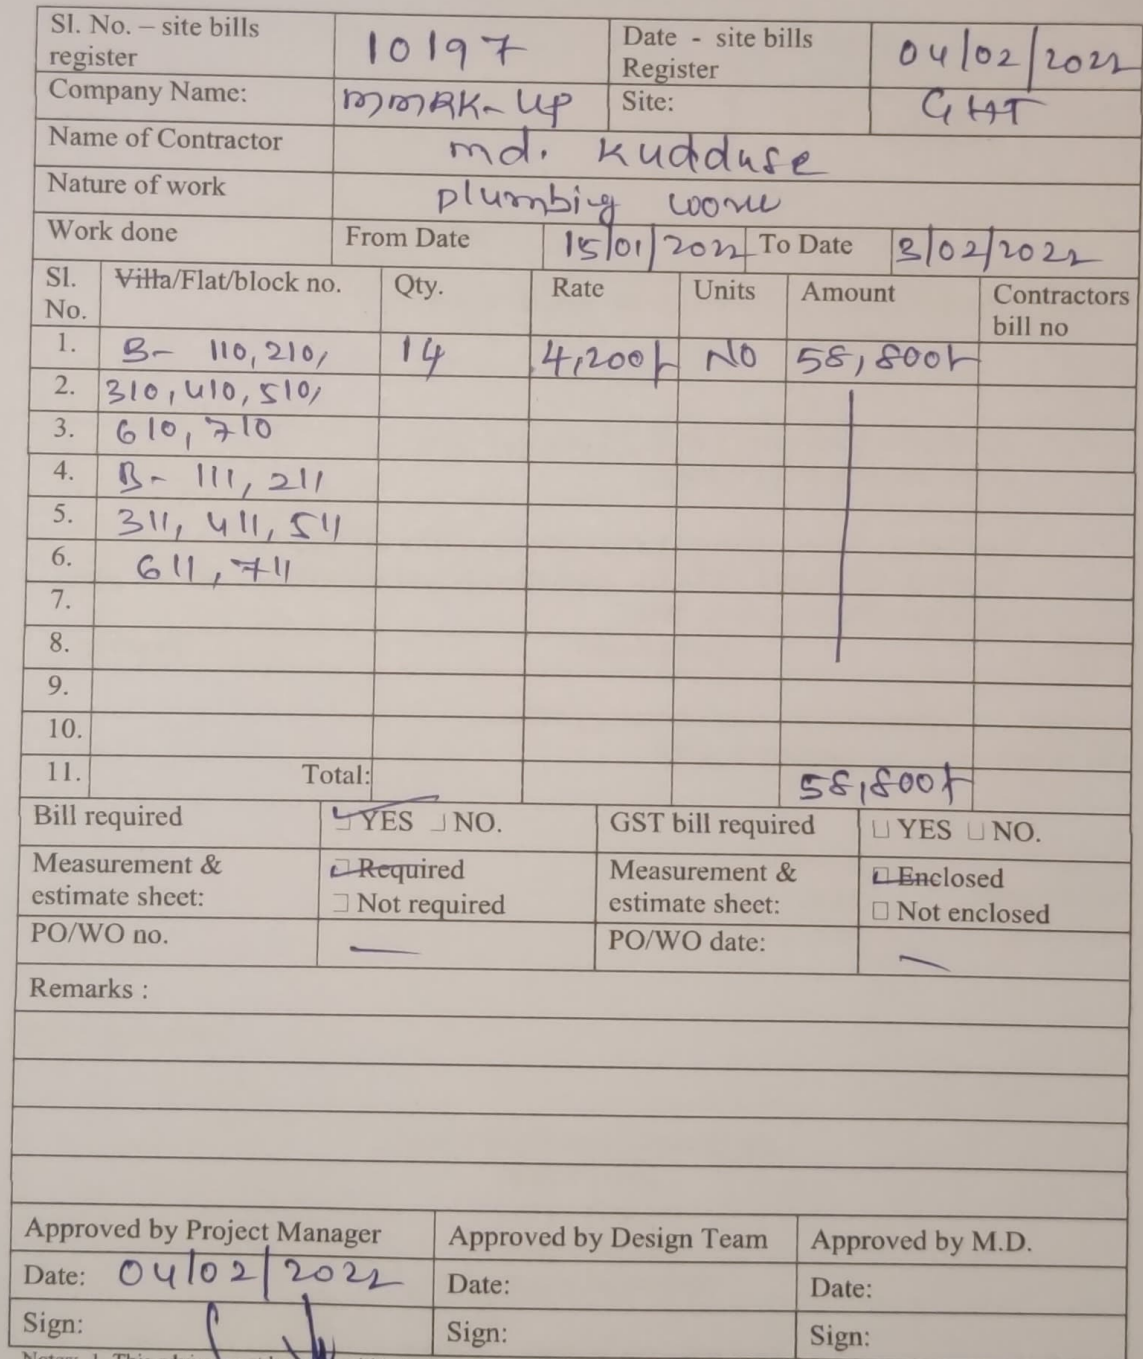 Sl. No. – site bills register 10197 Date - site bills Register 04/02/2022
Company Name: MMRK-UP Site: GHT
Name of Contractor md. Kudduse
Nature of work plumbing
Work done From Date 15/01/2022 To Date 3/02/2022
Sl. No. Villa/Flat/block no. Qty. Rate Units Amount Contractors bill no
1. B- 110, 210, 14 4,200/- NO 58,800/-
2. 310, 410, 510,
3. 610, 710
4. B- 111, 211
5. 311, 411, 511
6. 611, 711
7.
8.
9.
10.
11. Total: 58,800/-
Bill required YES NO. GST bill required YES NO.
Measurement & estimate sheet: Required Not required Measurement & estimate sheet: Enclosed Not enclosed
PO/WO no. — PO/WO date: —
Remarks :
Approved by Project Manager Approved by Design Team Approved by M.D.
Date: 04/02/2022 Date: Date:
Sign: Sign: Sign: